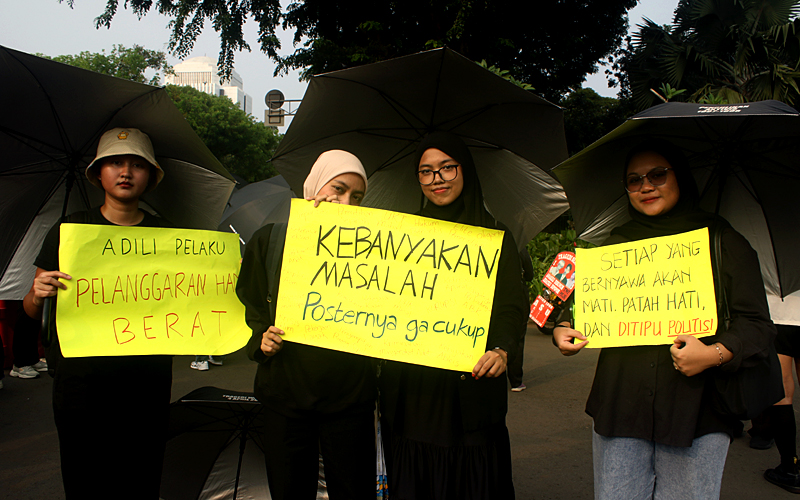 ADILI PELAKU
PELANGGARAN HAM
BERAT
KEBANYAKAN
MASALAH
Posternya ga cukup
SETIAP YANG
BERNYAWA AKAN
MATI, PATAH HATI,
DAN DITIPU POLITISI